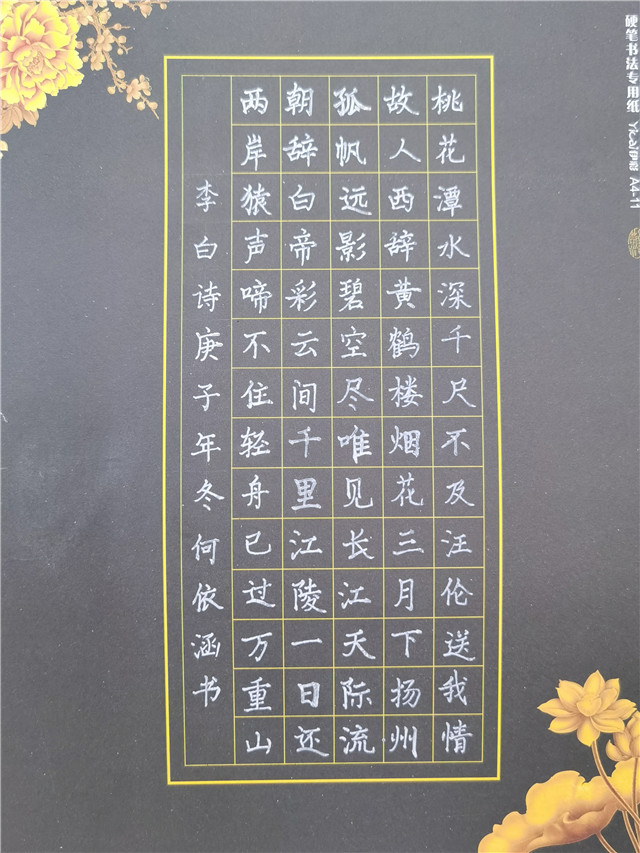 桃花潭水深千尺不及汪伦送我情
故人西辞黄鹤楼烟花三月下扬州
孤帆远影碧空尽唯见长江天际流
朝辞白帝彩云间千里江陵一日还
两岸猿声啼不住轻舟已过万重山
李白诗庚子年冬何依涵书
硬笔书法专用纸
A4-11